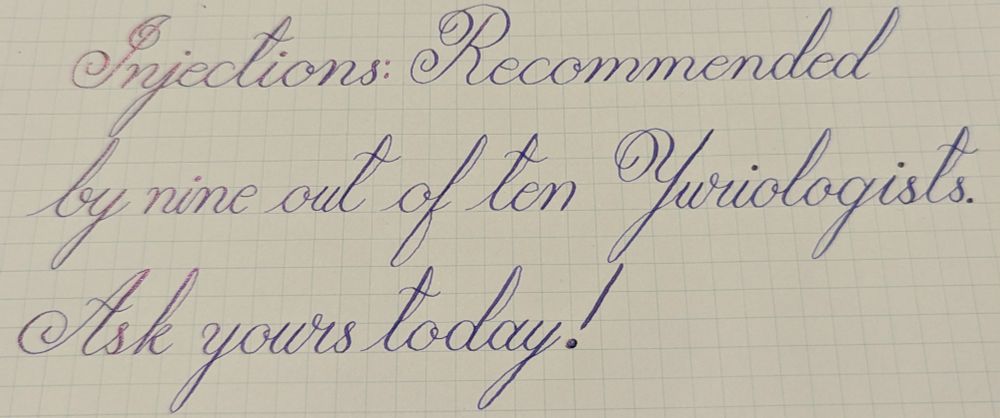 Injections: Recommended
by nine out of ten Yuriologists.
Ask yours today!